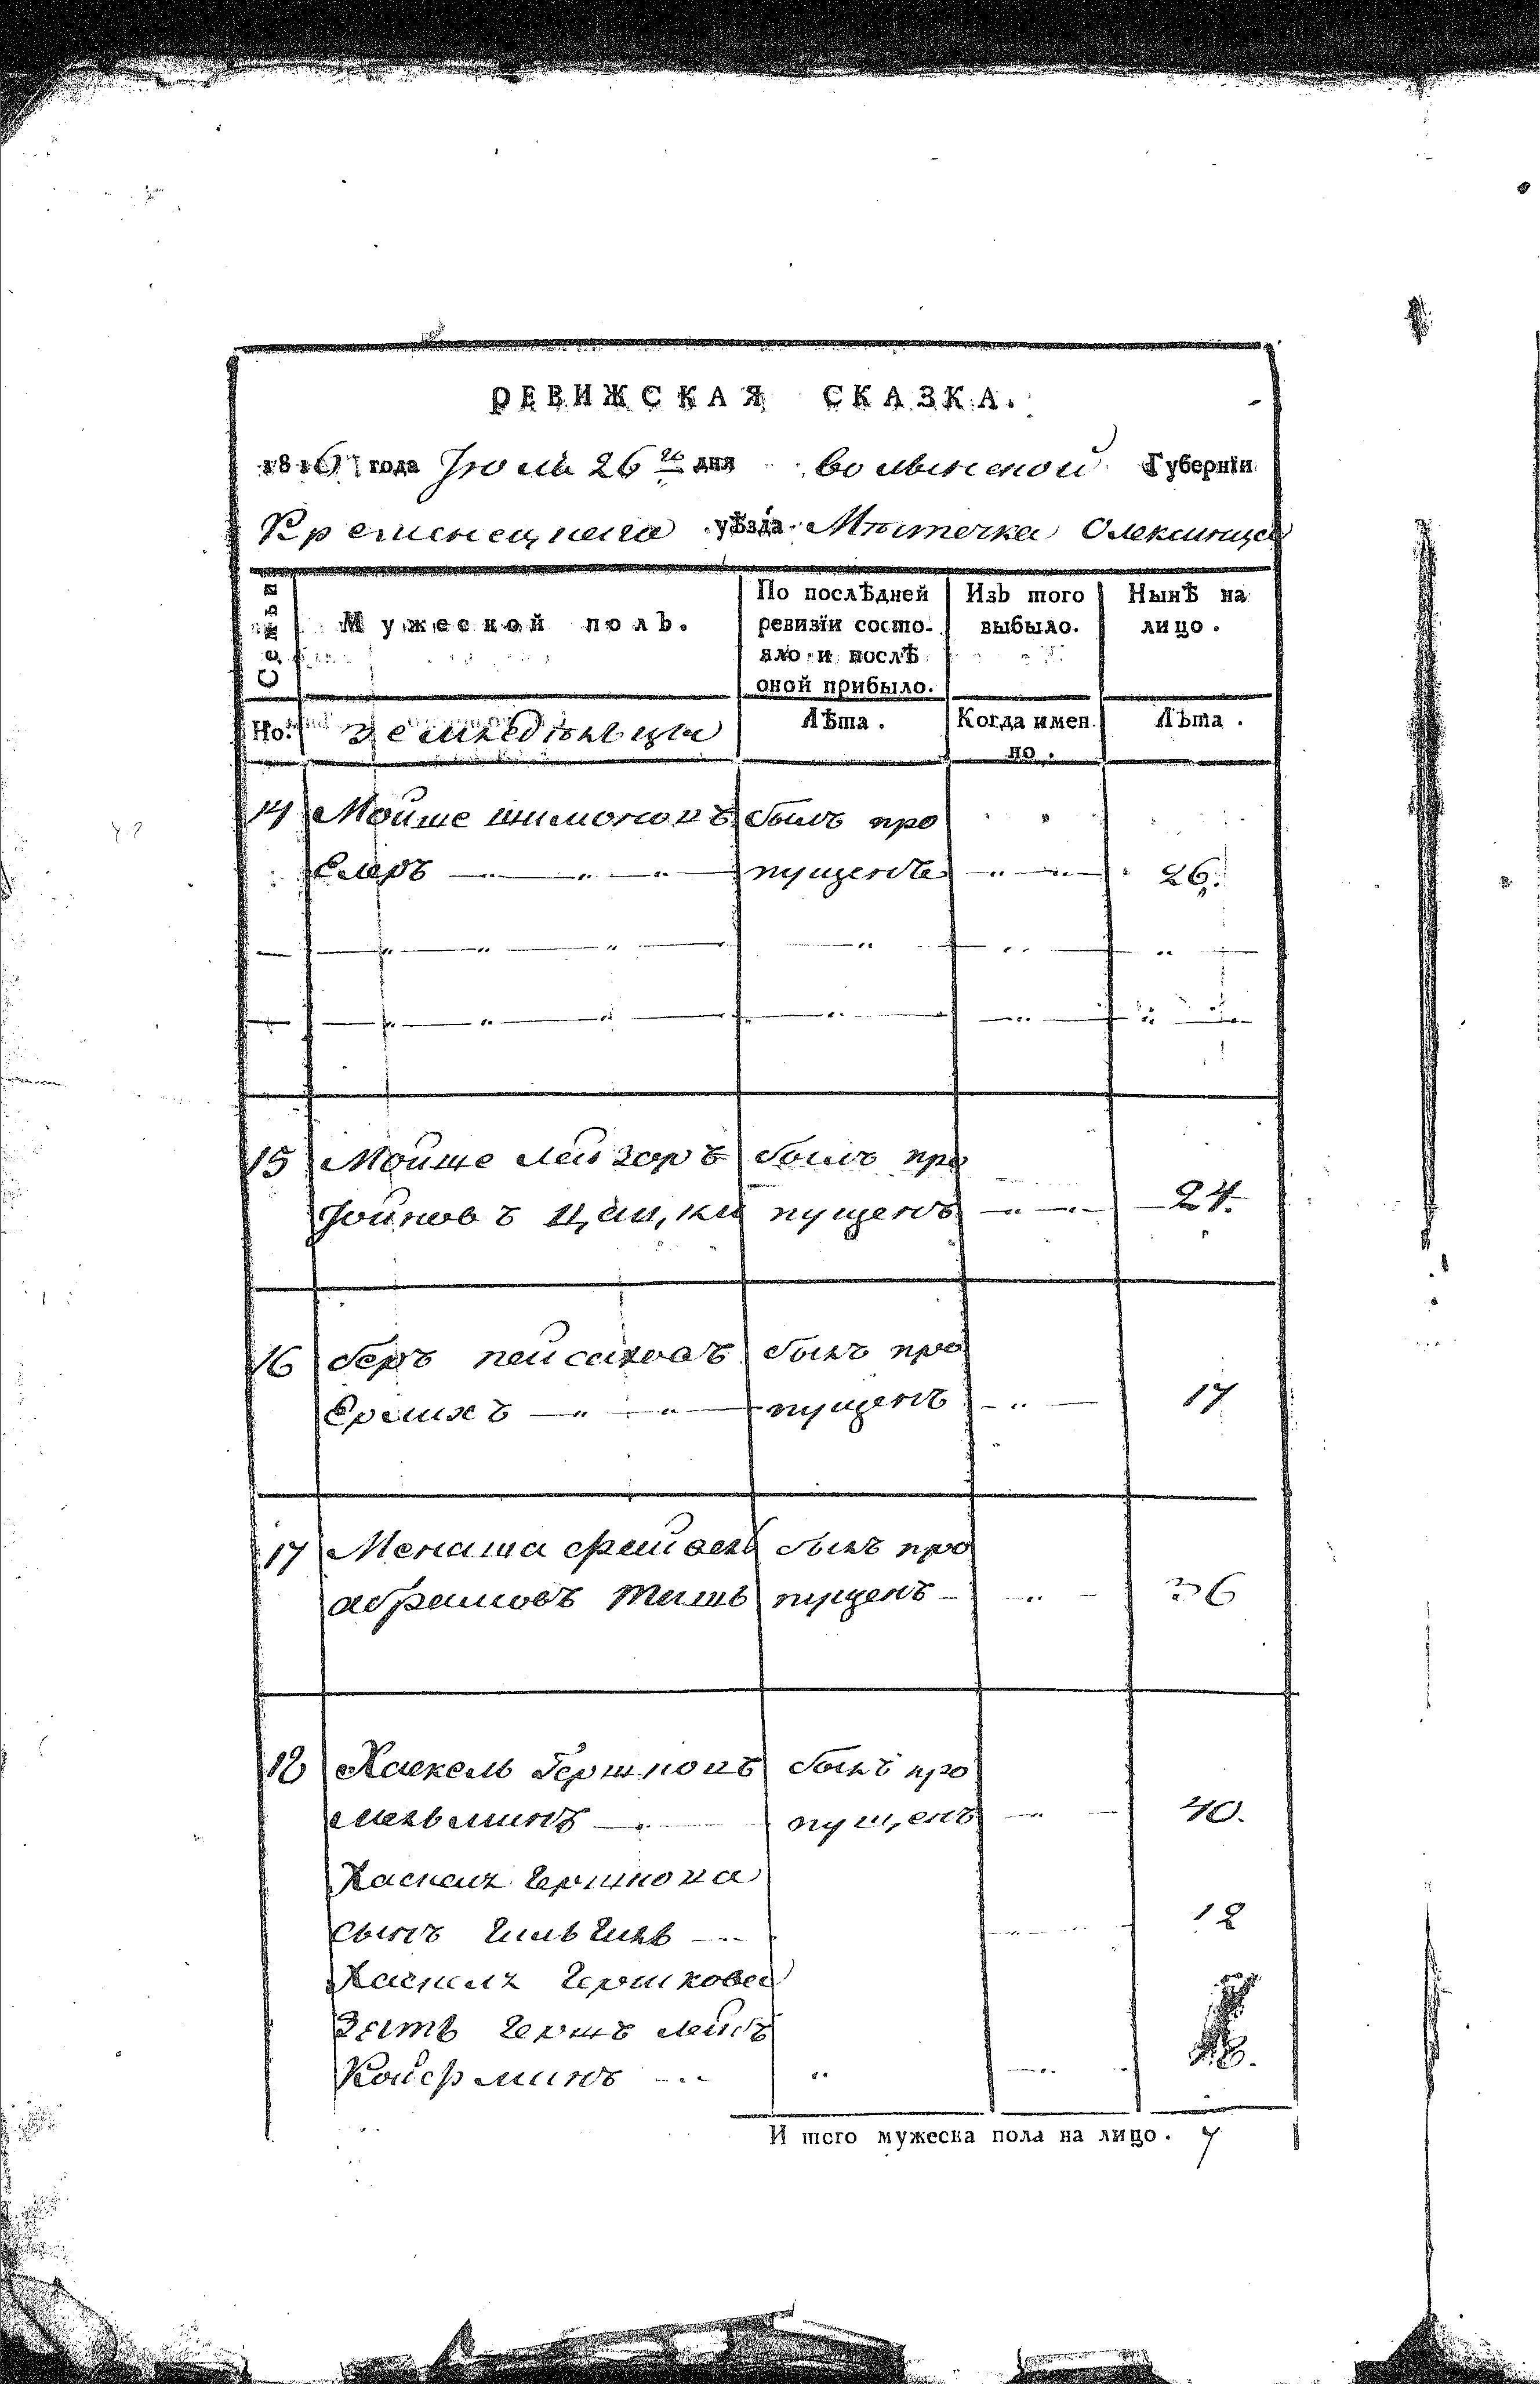 РЕВИЖСКАЯ СКАЗКА.
1816 года Іюль 26 го дня волынской Губернїи
Кременецкаго уѣзда Мѣстечка Олексинца
Семьи
Мужеской полъ.
По послѣдней ревизїи состо-
яло и послѣ
оной прибыло.
Изъ того
выбыло.
Нынѣ на
лицо.
Но.
земледѣльцы
Лѣта.
Когда имен
но.
Лѣта.
14 Мойше шимоновъ былъ про
Елеръ пущенъ 26.
15 Мойше лейзоръ былъ про
пущенъ 24.
16 беръ пейсаховъ былъ про
Ерлихъ пущенъ 17
17 Менаша файвель былъ про
абрамовъ тышъ пущенъ 36
18 Хаскель Гершковъ былъ про
мельминъ пущенъ 40.
Хаскеля гершкова
сынъ 12
Хаскеля гершкова
Зять гершъ лейбъ
18.
И того мужеска пола на лицо. 7